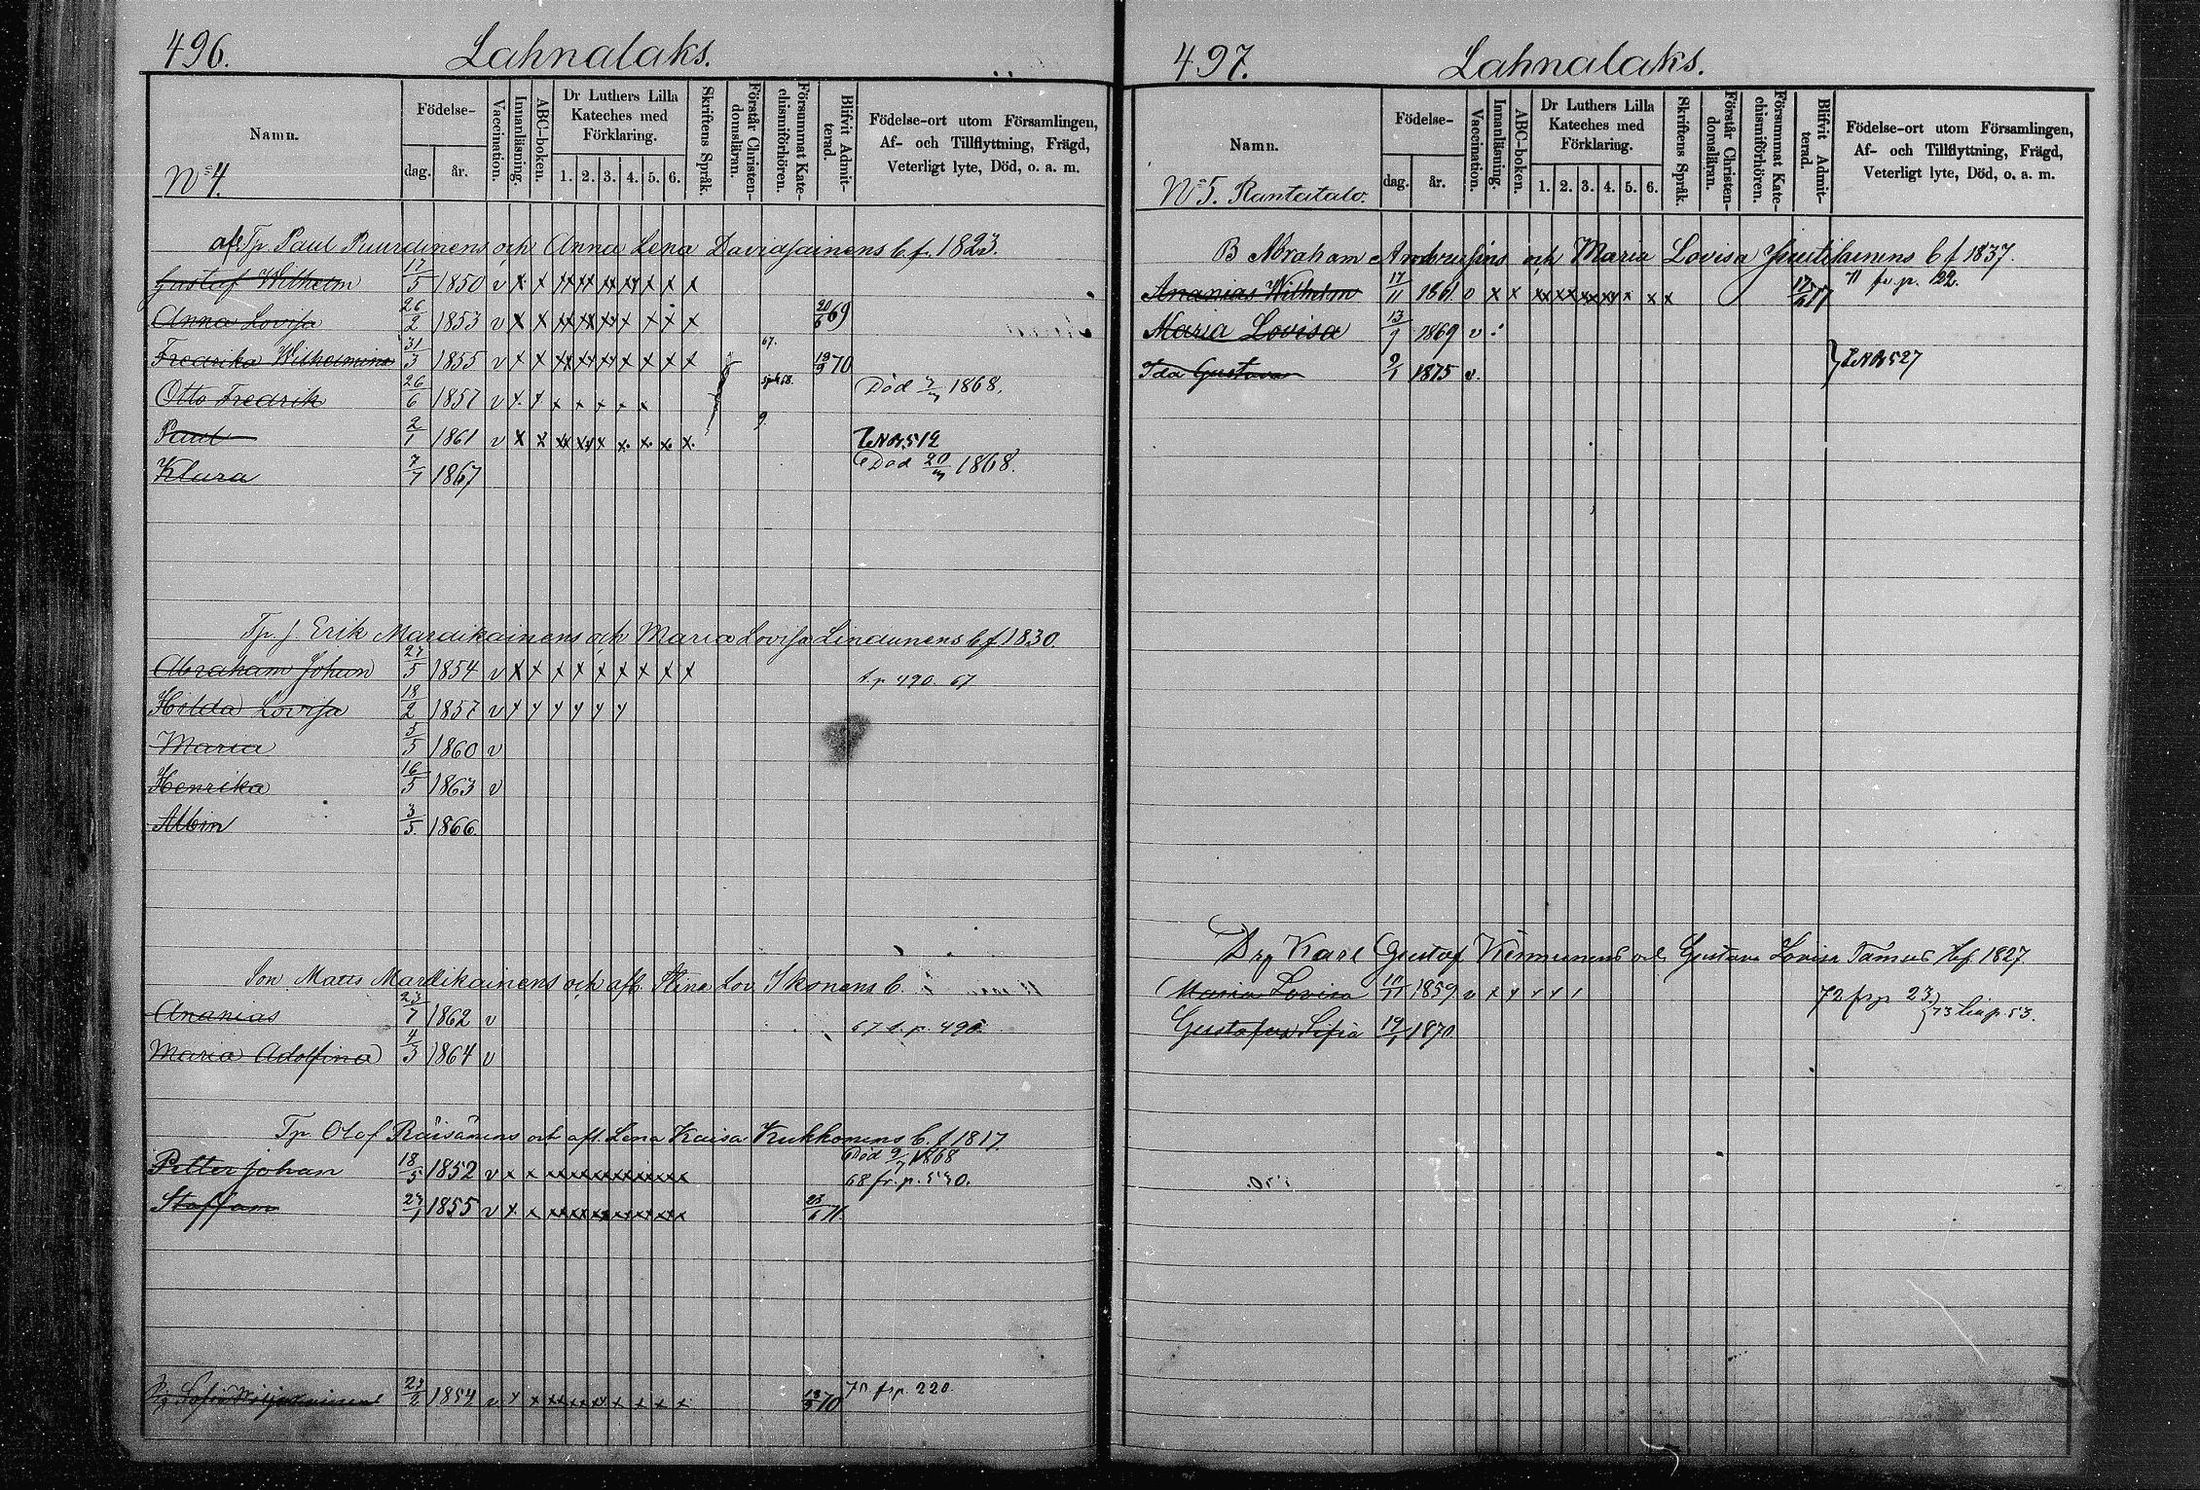 496. Lahnalaks.
Namn.
Födelse-
dag.
år.
Vaccination.
Innanläsning.
ABC-boken.
Dr Luthers Lilla
Kateches med
Förklaring.
1. 2. 3. 4. 5. 6.
Skriftens Språk.
Förstår Christen-
domsläran.
Försummat Kate-
chismiförhören.
Blifvit Admit-
terad.
Födelse-ort utom Församlingen,
Af- och Tillflyttning, Frägd,
Veterligt lyte, Död, o. a. m.
No 4.
af Tp. Paul Puurdinens och Anna Lena Davidsainens b f. 1823.
Gustaf Wilhelm 17/5 1850 v x x xx xx xx xx x x x
Anna Lovisa 26/2 1853 v x x xx xx xx x x x x 20/6 69
Fredrika Wilhelmina 31/3 1855 v x x xx xx xx x x x x 67. 19/9 70
Otto Fredrik 26/6 1857 v x x x x x x x Död 1868.
Paul 2/1 1861 v x x xx xx x x x x x 9. 512
Klara 7/7 1867 Död 20 1868.
Tp. J. Erik Mardikainens och Maria Lovisa Lindunens b f 1830.
Abraham Johan 27/5 1854 v x x x x x x x x x t. p 490. 67
Hilda Lovisa 18/2 1857 v x x x x x x
Maria 5/5 1860 v
Henrika 16/5 1863 v
Albin 3/5 1866.
Son Matts Mardikainens och afl. Stina Lov. Ikonens b.
Ananias 23/7 1862 v 67 t. p. 490.
Maria Adolfina 4/3 1864 v
Tp Olof Räisänens och afl. Lena Kaisa Kukkonens b. f 1817.
Petter Johan 18/5 1852 v x x xx xx xx xx xx xx Död 9/7 1868
68 fr. p. 530.
Staffan 27/1 1855 v x x xx xx xx xx xx xx 23/6 71.
Sofia 23/2 1854 v x x xx xx xx x x x x 18/9 70 70 frp. 220.
497. Lahnalaks.
Namn.
Födelse-
dag.
år.
Vaccination.
Innanläsning.
ABC-boken.
Dr Luthers Lilla
Kateches med
Förklaring.
1. 2. 3. 4. 5. 6.
Skriftens Språk.
Förstår Christen-
domsläran.
Försummat Kate-
chismiförhören.
Blifvit Admit-
terad.
Födelse-ort utom Församlingen,
Af- och Tillflyttning, Frägd,
Veterligt lyte, Död, o. a. m.
No 5. Rantatalo.
B Abraham Ambrusins och Maria Lovisa b f 1837.
Ananias Wilhelm 17/11 1861 v x x xx xx xx xx x x x 17/6 77 71 fr. p. 122.
Maria Lovisa 13/9 1869 v
Ida Gustava 9/1 1875 v. 527
Drg Karl Gustaf Kinnunens och Gustava Lovisa Tamus bf 1827
Maria Lovisa 11/11 1859 v x x x x 72 frp 23
73 p. 53.
Gustafva Sofia 19/1 1870